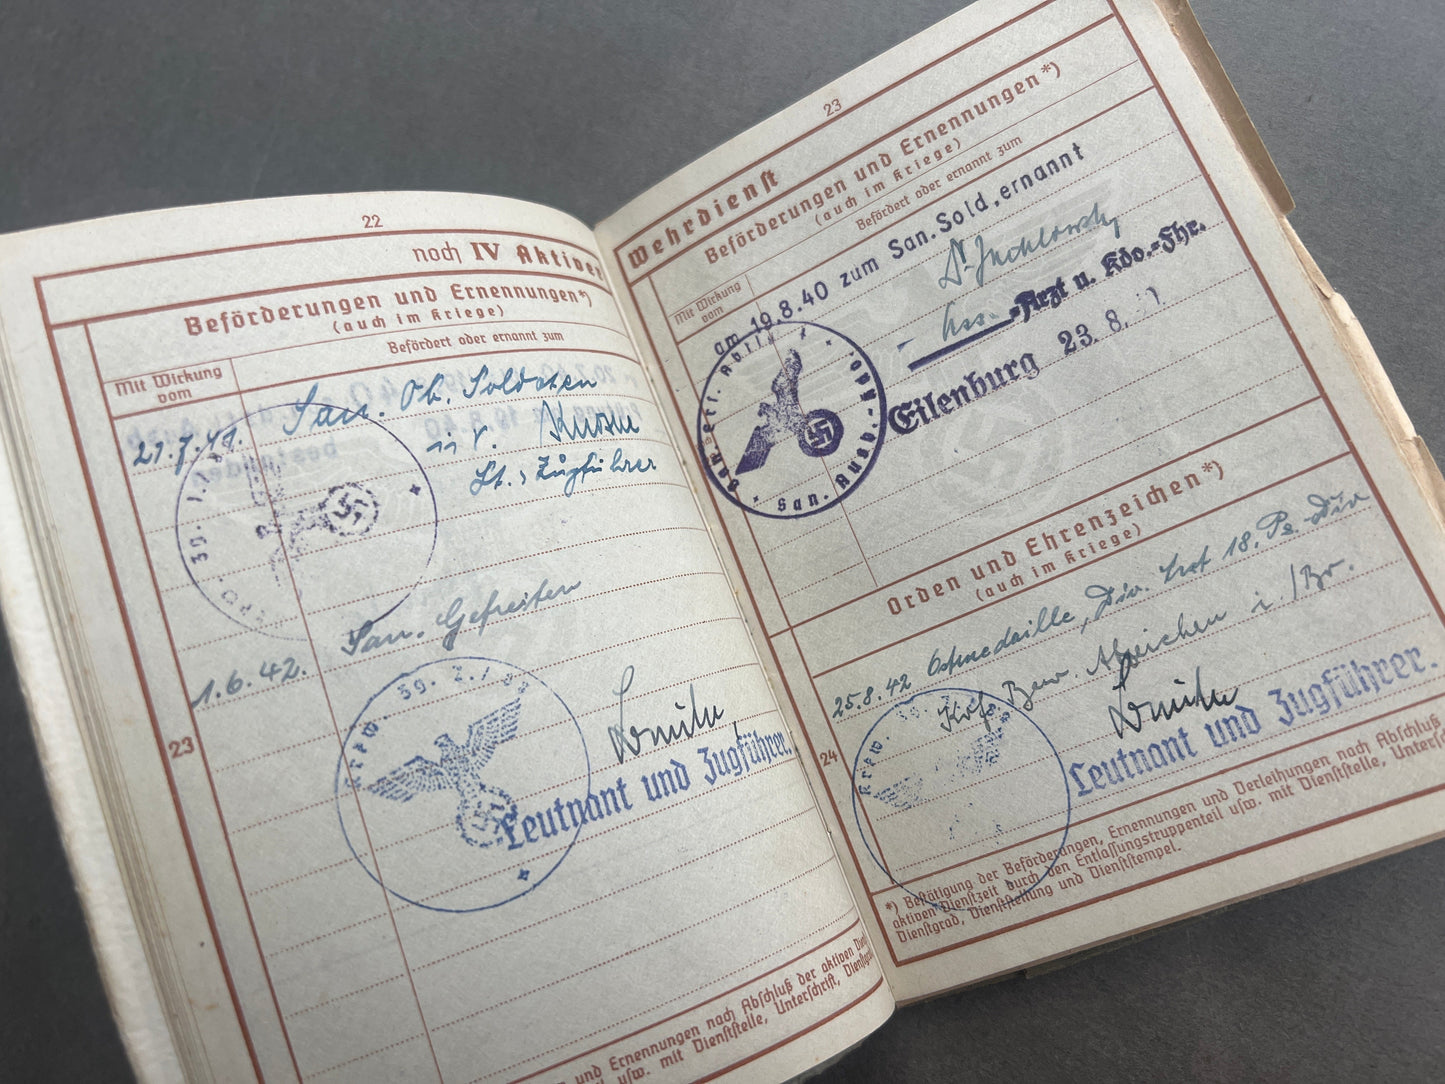 22
noch IV Aktiver
Beförderungen und Ernennungen*)
(auch im Kriege)
Mit Wirkung
vom
Befördert oder ernannt zum
San. Ob. Soldaten
21.7.41.
i. V.
Lt. u. Zugführer
San. Gefreiten
1.6.42.
Leutnant und Zugführer.
23
und Ernennungen nach Abschluß der aktiven
usw. mit Dienststelle, Unterschrift,
23
Wehrdienst
Beförderungen und Ernennungen*)
(auch im Kriege)
Mit Wirkung
vom
Befördert oder ernannt zum
am 19.8.40 zum San. Sold. ernannt
Ass.-Arzt u. Kdo.-Fhr.
Eilenburg 23. 8.
San. Ausb.
Orden und Ehrenzeichen*)
(auch im Kriege)
25.8.42 Ostmedaille, Div. Arzt 18. Pz. Div
Kdf. Bew. Abzeichen i. /Br.
Leutnant und Zugführer.
24
*) Bestätigung der Beförderungen, Ernennungen und Verleihungen nach Abschluß
aktiven Dienstzeit durch den Entlassungstruppenteil usw. mit Dienststelle,
Dienstgrad, Dienststellung und Dienststempel.